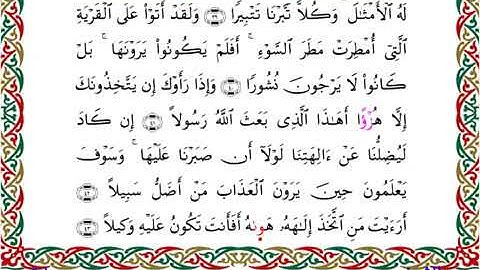 لَهُ ٱلْأَمْثَـٰلَ وَكُلًّا تَبَّرْنَا تَتْبِيرًا ۝٣٩ وَلَقَدْ أَتَوْا۟ عَلَى ٱلْقَرْيَةِ
ٱلَّتِىٓ أُمْطِرَتْ مَطَرَ ٱلسَّوْءِ ۚ أَفَلَمْ يَكُونُوا۟ يَرَوْنَهَا ۚ بَلْ
كَانُوا۟ لَا يَرْجُونَ نُشُورًا ۝٤٠ وَإِذَا رَأَوْكَ إِن يَتَّخِذُونَكَ
إِلَّا هُزُؤًا أَهَـٰذَا ٱلَّذِى بَعَثَ ٱللَّهُ رَسُولًا ۝٤١ إِن كَادَ
لَيُضِلُّنَا عَنْ ءَالِهَتِنَا لَوْلَآ أَن صَبَرْنَا عَلَيْهَا ۚ وَسَوْفَ
يَعْلَمُونَ حِينَ يَرَوْنَ ٱلْعَذَابَ مَنْ أَضَلُّ سَبِيلًا ۝٤٢
أَرَءَيْتَ مَنِ ٱتَّخَذَ إِلَـٰهَهُۥ هَوَىٰهُ أَفَأَنتَ تَكُونُ عَلَيْهِ وَكِيلًا ۝٤٣